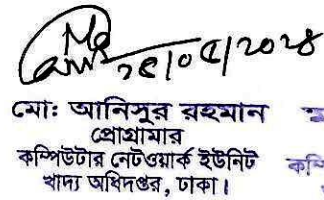 ২৫/০৫/২০২৪
মো: আনিসুর রহমান
প্রোগ্রামার
কম্পিউটার নেটওয়ার্ক ইউনিট
খাদ্য অধিদপ্তর, ঢাকা।